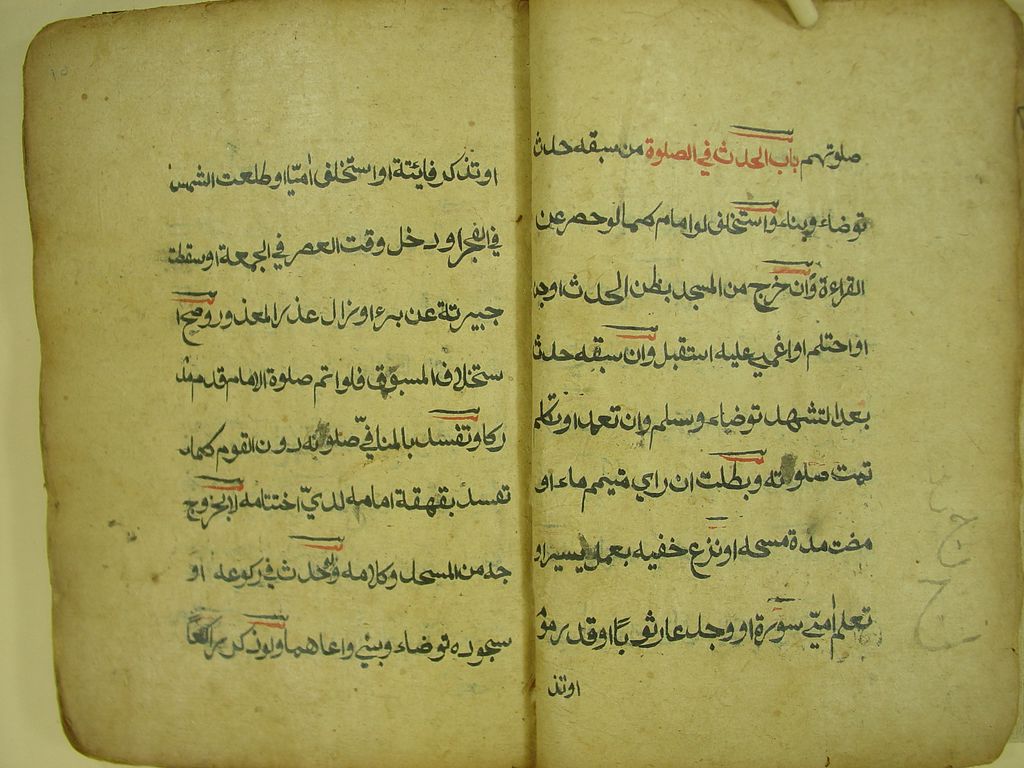 صلوتهم باب الحدث في الصلوة من سبقه حدث
توضاء وبناء واستخلف لو امام كما لو حصر عن
القراءة وان خرج من المسجد بظن الحدث اوجن
او احتلم او اغمي عليه استقبل وان سبقه حدث
بعد التشهد توضاء وسلم وان تعمد او تكلم
تمت صلوته وبطلت ان راي متيمم ماء او
مضت مدة مسحه او نزع خفيه بعمل يسير او
تعلم امّيّ سورة او وجد عار ثوبًا او قدر مؤ
او تذ
او تذكر فايتة او استخلف اميّا او طلعت الشمس
في الفجر او دخل وقت العصر في الجمعة او سقطت
جبيرتة عن برء او زال عذر المعذور وصح ا
ستخلاف المسبوق فلو اتم صلوة الامام قدم مد
ركا وتفسد بالمنافيّ صلوته دون القوم كما
تفسد بقهقة امامه لديّ اختتامه لا بخروج
جه من المسجد وكلامه ولو حدث في ركوعه او
سجوده توضاء وبني واعاهما ولو ذكر راكعًا